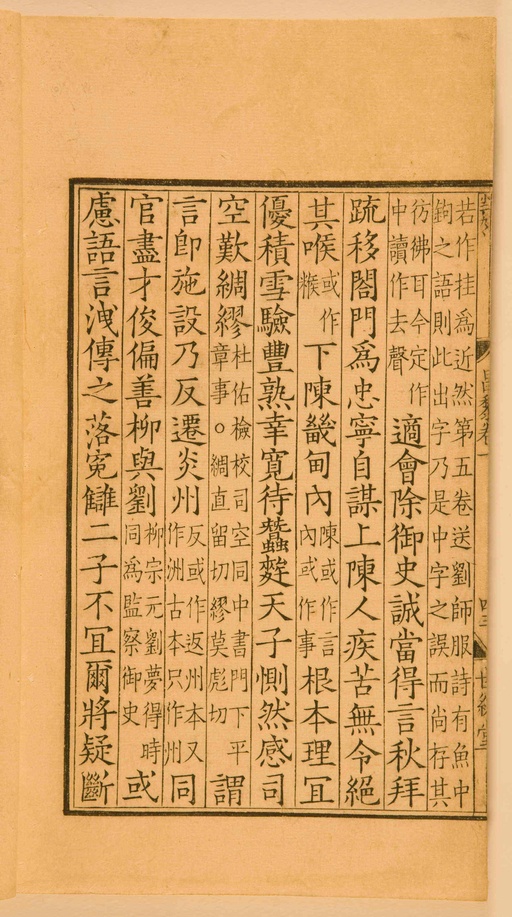 若作挂為近然第五卷送劉師服詩有魚中
鉤之語則此出字乃是中字之誤而尚存其
彷彿耳今定作
中讀作去聲
適會除御史誠當得言秋拜
疏移閤門為忠寧自謀上陳人疾苦無令絕
其喉或作糇下陳畿甸內陳或作言內或作事根本理宜
優積雪驗豐熟幸寬待蠶麰天子惻然感司
空歎綢繆杜佑檢校司空同中書門下平章事○綢直留切繆莫彪切謂
言即施設乃反遷炎州反或作返州本又作洲古本只作州同
官盡才俊偏善柳與劉柳宗元劉夢得時同為監察御史或
慮語言洩傳之落冤讎二子不宜爾將疑斷